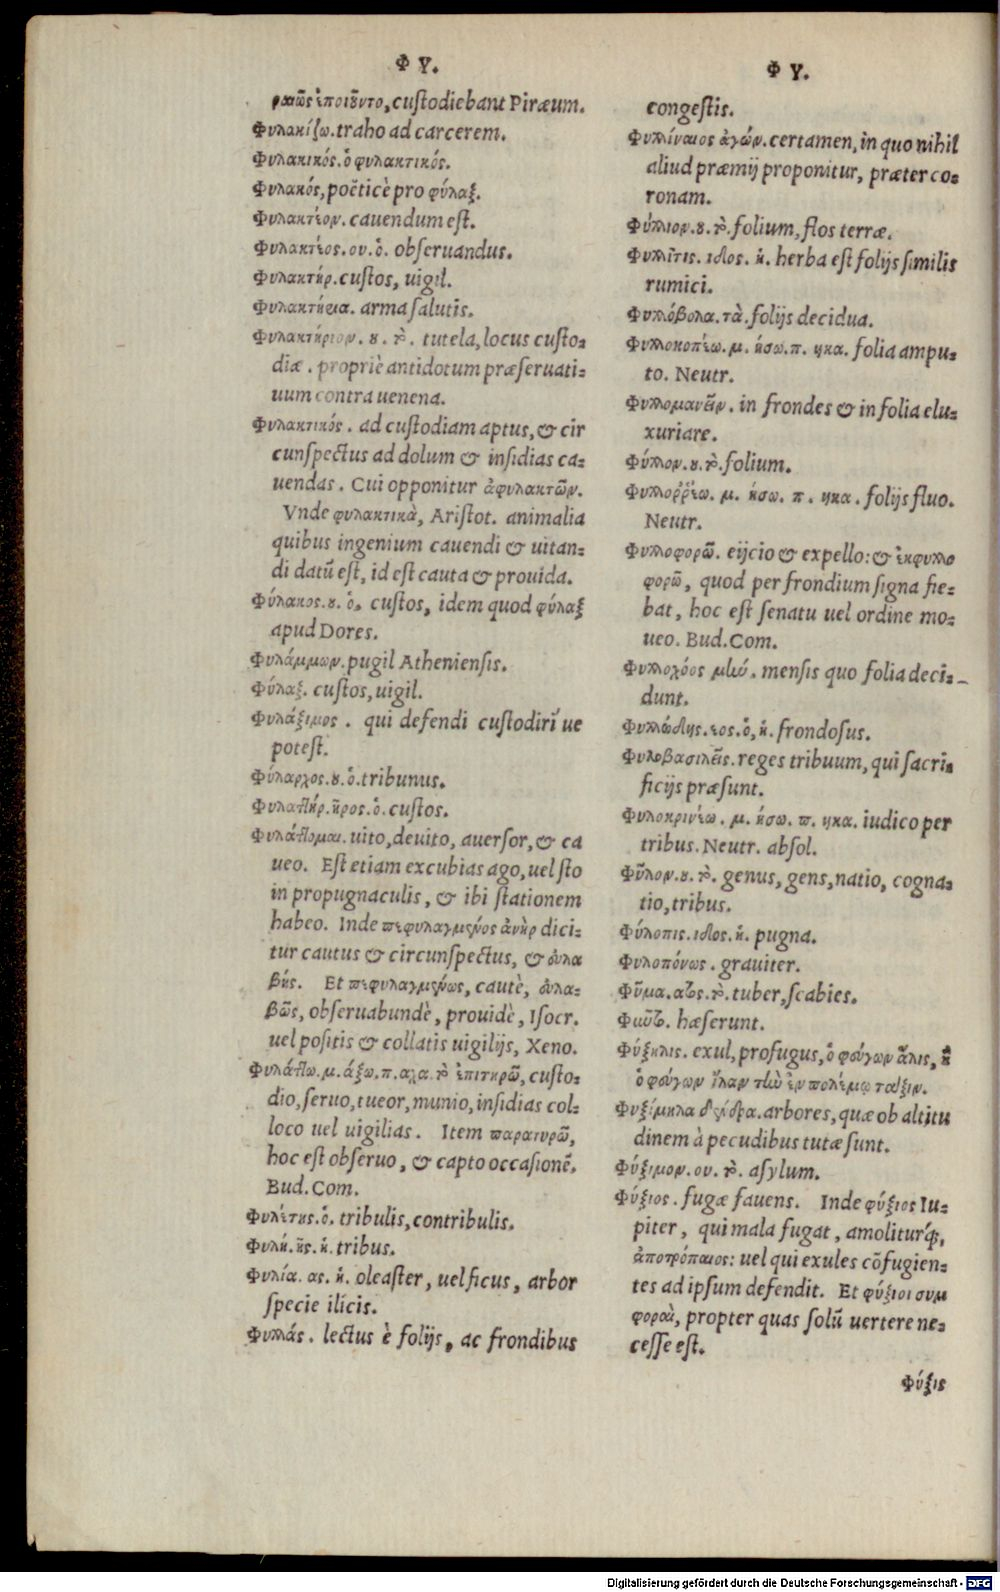 Φ Υ.
ραιῶς ἐποιοῦντο, cuſtodiebant Piræum.
Φυλακίζω. traho ad carcerem.
Φυλακικός. ὁ φυλακτικός.
Φυλακός, poëticè pro φύλαξ.
Φυλακτέον. cauendum eſt.
Φυλακτέος. ου. ὁ. obſeruandus.
Φυλακτήρ. cuſtos, uigil.
Φυλακτήρια. arma ſalutis.
Φυλακτήριον. ου. τὸ. tutela, locus cuſto-
diæ. propriè antidotum præſeruati-
uum contra uenena.
Φυλακτικός. ad cuſtodiam aptus, & cir
cunſpectus ad dolum & inſidias ca-
uendas. Cui opponitur ἀφυλακτῶν.
Vnde φυλακτικὰ, Ariſtot. animalia
quibus ingenium cauendi & uitan-
di datũ eſt, id eſt cauta & prouida.
Φύλακος. ου. ὁ. cuſtos, idem quod φύλαξ
apud Dores.
Φυλάμμων. pugil Athenienſis.
Φύλαξ. cuſtos, uigil.
Φυλάξιμος. qui defendi cuſtodiri ue
poteſt.
Φύλαρχος. ου. ὁ. tribunus.
Φυλατήρ. ῆρος. ὁ. cuſtos.
Φυλάττομαι. uito, deuito, auerſor, & ca
ueo. Eſt etiam excubias ago, uel ſto
in propugnaculis, & ibi ſtationem
habeo. Inde πεφυλαγμένος ἀνὴρ dici-
tur cautus & circunſpectus, & εὐλα
βής. Et πεφυλαγμένως, cautè, εὐλα-
βῶς, obſeruabundè, prouidè, Iſocr.
uel poſitis & collatis uigilijs, Xeno.
Φυλάττω. μ. άξω. π. αχα. τὸ ἐπιτηρῶ, cuſto-
dio, ſeruo, tueor, munio, inſidias col-
loco uel uigilias. Item παρατηρῶ,
hoc eſt obſeruo, & capto occaſionẽ.
Bud. Com.
Φυλέτης. ὁ. tribulis, contribulis.
Φυλή. ῆς. ἡ. tribus.
Φυλία. ας. ἡ. oleaſter, uel ficus, arbor
ſpecie ilicis.
Φυλλάς. lectus è folijs, ac frondibus
Φ Υ.
congeſtis.
Φυλλίναιος ἀγών. certamen, in quo nihil
aliud præmij proponitur, præter co-
ronam.
Φύλλιον. ου. τὸ. folium, flos terræ.
Φυλλῖτις. ιδος. ἡ. herba eſt folijs ſimilis
rumici.
Φυλλόβολα. τὰ. folijs decidua.
Φυλλοκοπέω. μ. ήσω. π. ηκα. folia ampu-
to. Neutr.
Φυλλομανεῖν. in frondes & in folia elu-
xuriare.
Φύλλον. ου. τὸ. folium.
Φυλλοῤῥέω. μ. ήσω. π. ηκα. folijs fluo.
Neutr.
Φυλλοφορῶ. eijcio & expello: & ἐκφυλλο
φορῶ, quod per frondium ſigna fie-
bat, hoc eſt ſenatu uel ordine mo-
ueo. Bud. Com.
Φυλλοχόος μὴν. menſis quo folia deci-
dunt.
Φυλλώδης. εος. ὁ, ἡ. frondoſus.
Φυλοβασιλεῖς. reges tribuum, qui ſacri
ficijs præſunt.
Φυλοκρινέω. μ. ήσω. π. ηκα. iudico per
tribus. Neutr. abſol.
Φῦλον. ου. τὸ. genus, gens, natio, cogna-
tio, tribus.
Φύλοπις. ιδος. ἡ. pugna.
Φυλοπόνως. grauiter.
Φῦμα. ατος. τὸ. tuber, ſcabies.
hæſerunt.
Φύξηλις. exul, profugus, ὁ φεύγων ἅλις, ἢ
ὁ φεύγων ἴλαν τὴν ἐν πολέμῳ τάξιν.
Φυξίμηλα δένδρα. arbores, quæ ob altitu
dinem à pecudibus tutæ ſunt.
Φύξιμον. ου. τὸ. aſylum.
Φύξιος. fugæ fauens. Inde φύξιος Iu-
piter, qui mala fugat, amoliturq́;,
ἀποτρόπαιος: uel qui exules cõfugien-
tes ad ipſum defendit. Et φύξιοι συμ
φοραὶ, propter quas ſolũ uertere ne-
ceſſe eſt.
Φύξις
Digitalisierung gefördert durch die Deutsche Forschungsgemeinschaft - DFG